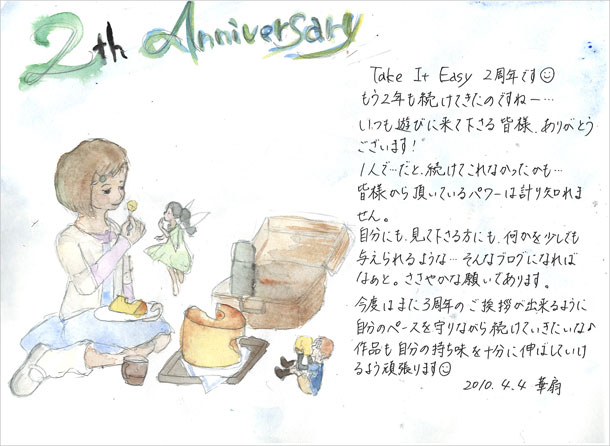 2th Anniversary
Take It Easy 2周年です
もう2年も続けてきたのですねー…
いつも遊びに来て下さる皆様、ありがとう
ございます!
1人で…だと、続けてこれなかったかも…
皆様から頂いているパワーは計り知れま
せん。
自分にも、見て下さる方にも、何かを少しでも
与えられるような…そんなブログになれば
なぁと。ささやかな願いであります。
今度はまた3周年のご挨拶が出来るように
自分のペースを守りながら続けていきたいな♪
作品も自分の持ち味を十分に伸ばしていけ
るよう頑張ります
2010.4.4 華扇